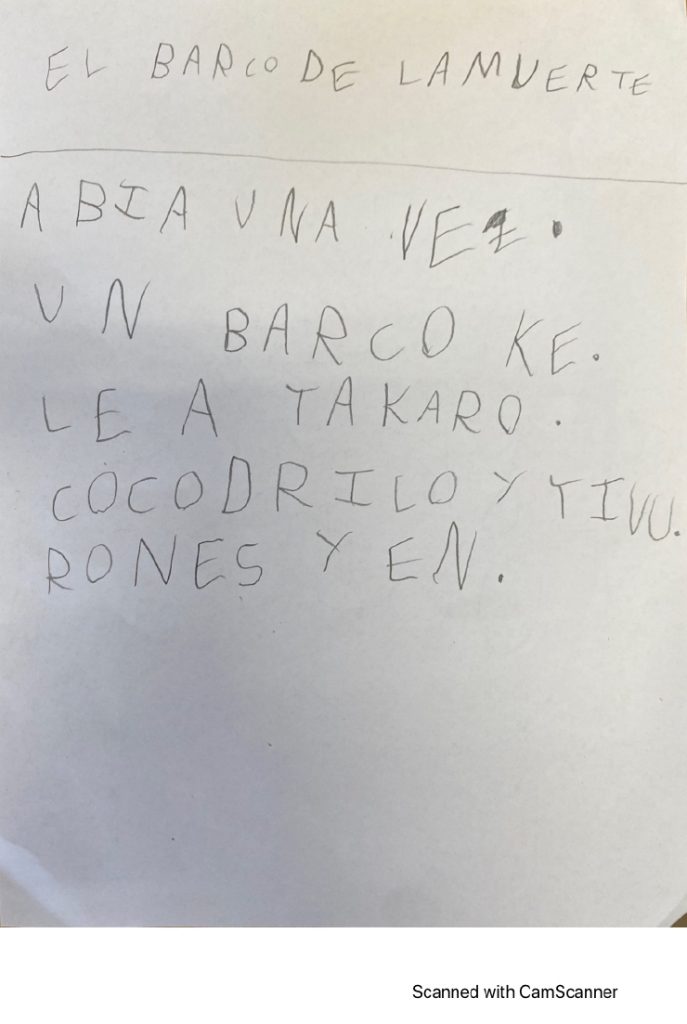 EL BARCO DE LA MUERTE
ABIA UNA VEZ.
UN BARCO KE.
LE A TAKARO.
COCODRILO Y TIVU.
RONES Y EN.
Scanned with CamScanner